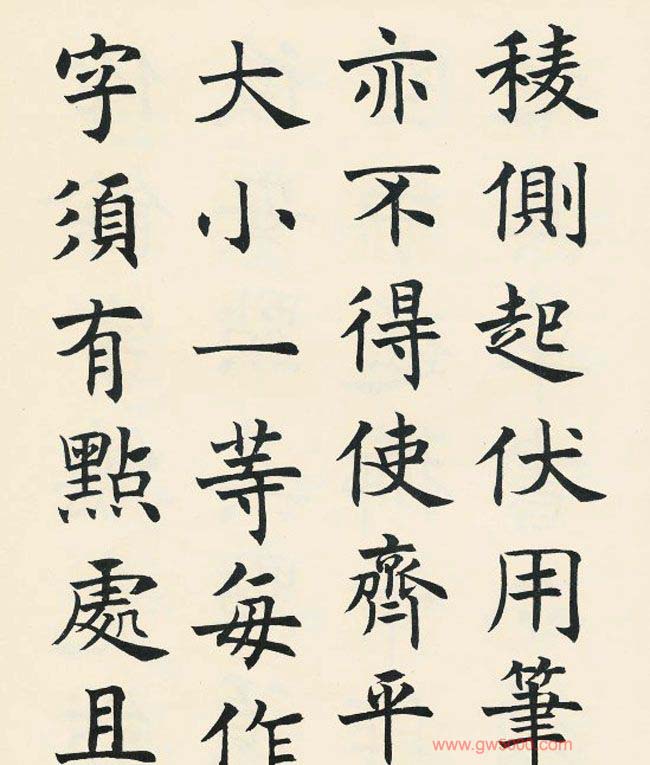 稜側起伏用筆
亦不得使齊平
大小一等每作
字須有點處且
www.gw5000.com